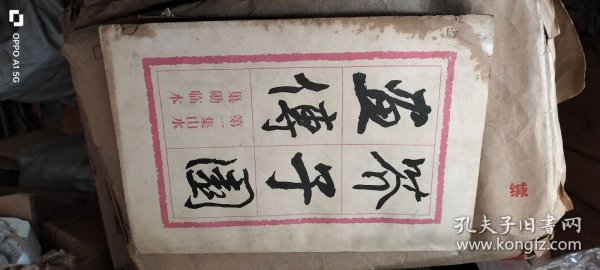 芥子園
画傳
第一集山水
巢勋临本
缄
OPPO A1 5G
孔夫子旧书网
www.kongfz.com